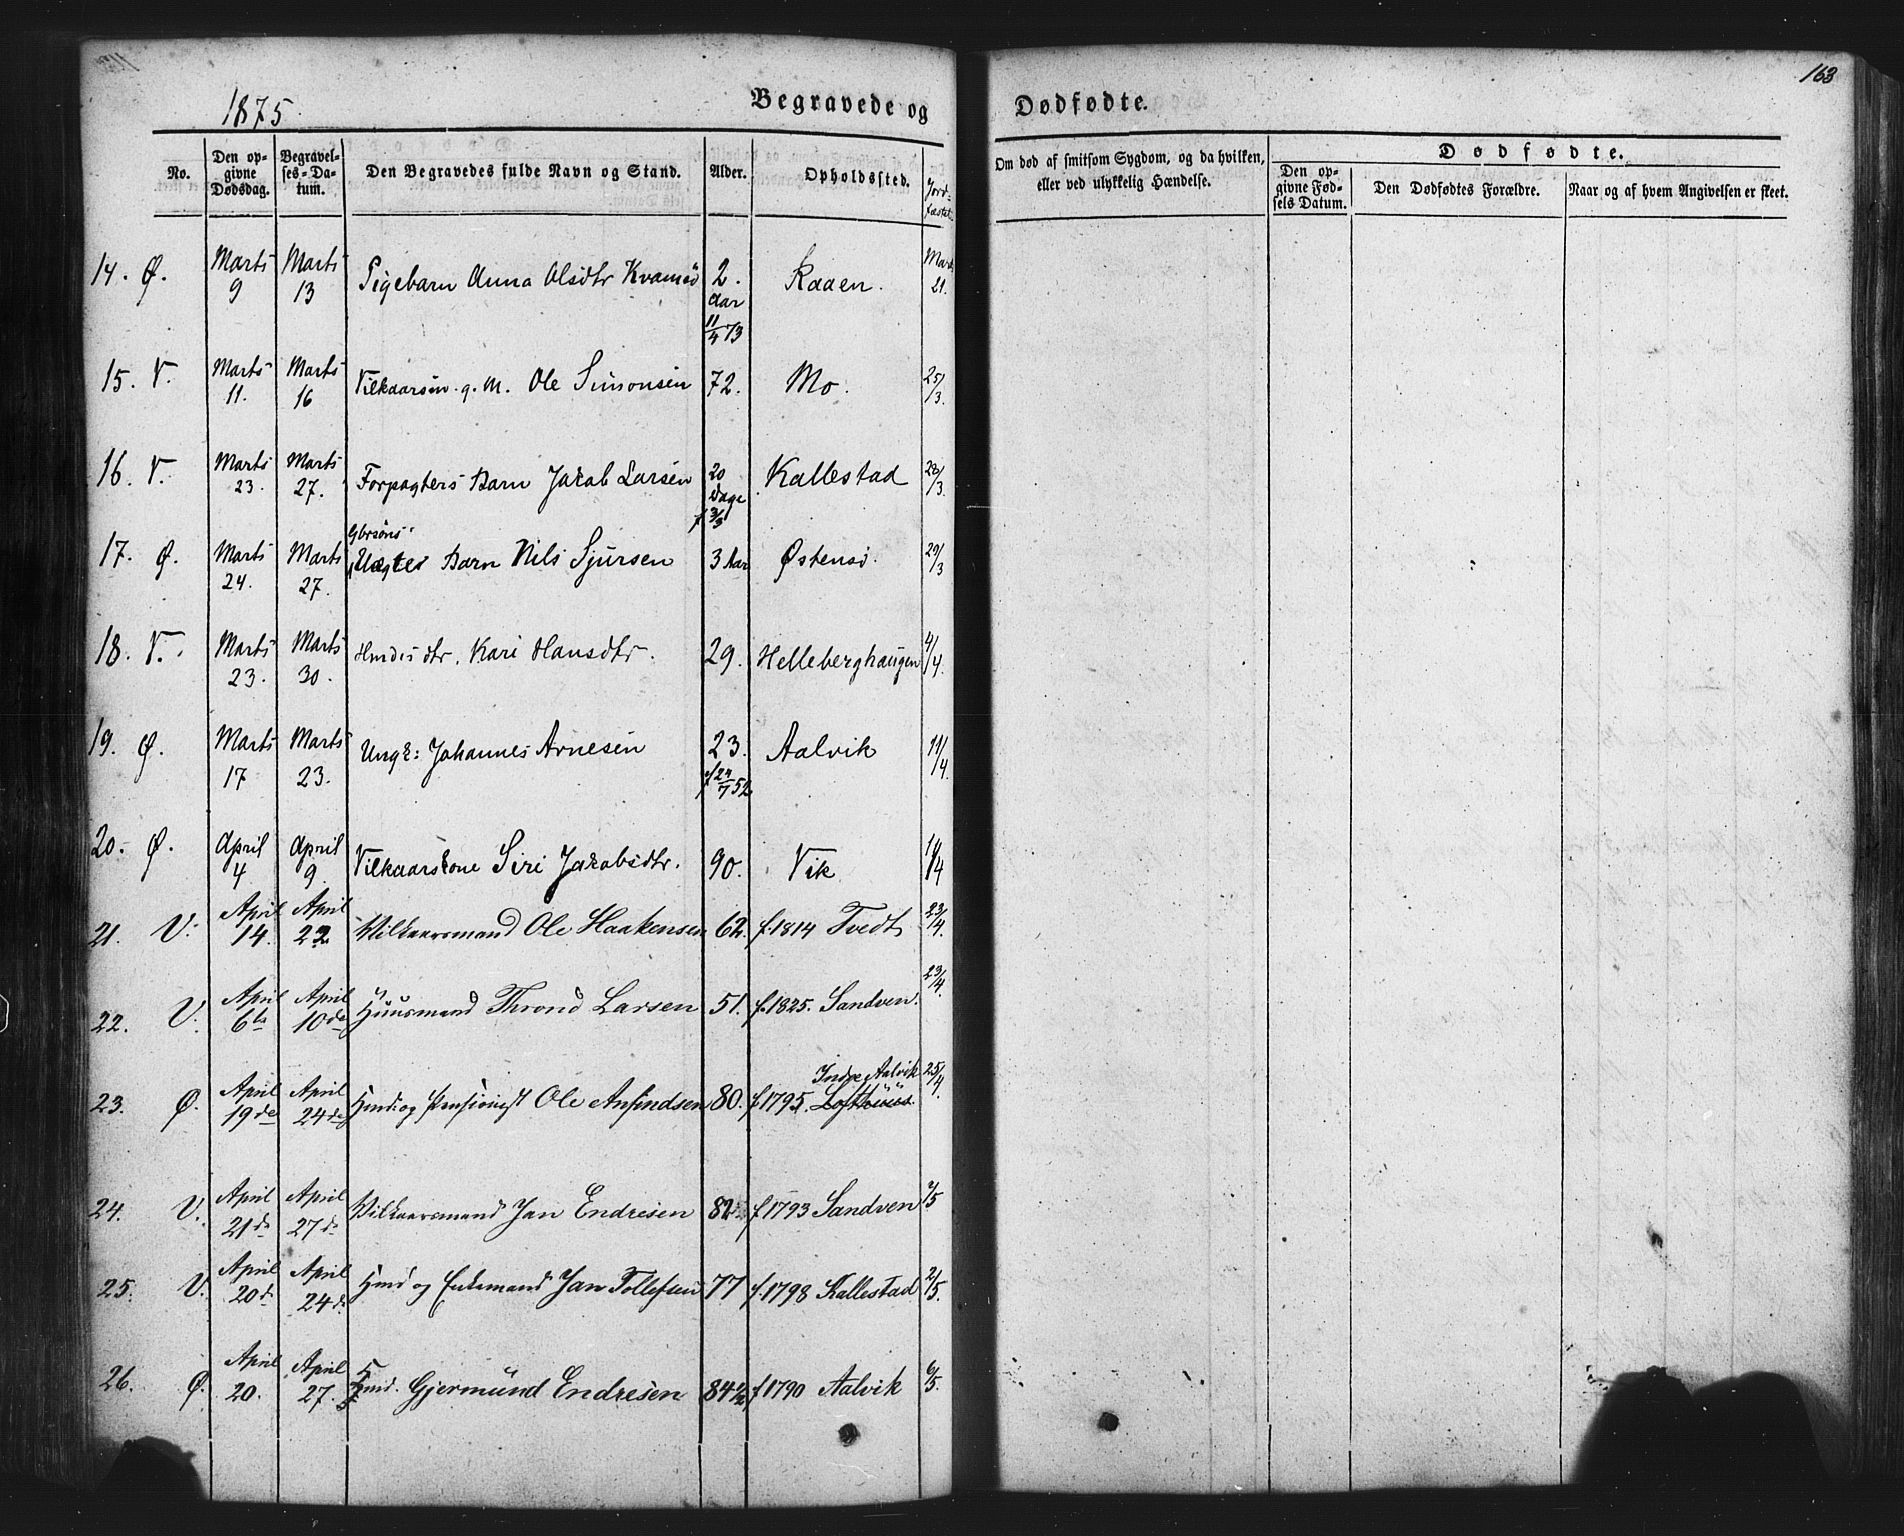 1875.
Begravede og
Dødfødte.
163
No.
Den op-
givne
Dødsdag.
Begravel-
ses-Da-
tum.
Den Begravedes fulde Navn og Stand.
Alder.
Opholdssted.
Jord-
fæstet
Om død af smitsom Sygdom, og da hvilken,
eller ved ulykkelig Hændelse.
Dødfødte.
Den op-
givne Fød-
sels Datum.
Den Dødfødtes Forældre.
Naar og af hvem Angivelsen er skeet.
14. Ø. Marts 9 Marts 13 Pigebarn Anna Olsdtr Kvamsö 2. Aar 11/4 73 Kaaen. Marts 21.
15. V. Marts 11. Marts 16 Vilkaarsm. g. M. Ole Simonsen 72. Mo. 25/3.
16. V. Marts 23. Marts 27. Forpagters Barn Jakob Larsen 20 Dage f 3/3 Kallestad 28/3.
17. Ø. Marts 24. Marts 27. Gbrsöns Uægtes Barn Nils Sjursen 3 Aar Østensö. 29/3
18. V. Marts 23. Marts 30. Hmdsdtr. Kari Hansdtr. 29. Helleberghaugen 4/4.
19. Ø. Marts 17 Marts 23. Ungk: Johannes Arnesen 23. f 24/7 52 Aalvik 11/4.
20. Ø. April 4 April 9. Vilkaarskone Siri Jakobsdtr. 90. Vik /4
21. V. April 14. April 22 Vilkaarsmand Ole Haakensen 62. f. 1814 Tvedt 23/4.
22. V. April 6te April 10de Huusmand Thrond Larsen 51. f. 1825. Sandven. 23/4.
23. Ø. April 19de April 24de Hmd. og Pensionist Ole Anfindsen 80. f 1795. Indre Aalvik Lofthuus. 25/4.
24. V. April 21de April 27de Vilkaarsmand Jan Endresen 82 f 1793 Sandven 2/5
25. V. April 20de April 24de Hmd og Enkemand Jan Tollefsen 77 f. 1798 Kallestad 2/5.
26. Ø. April 20. April 27. Hmd. Gjermund Endresen 84 1/2 f 1790 Aalvik 6/5.